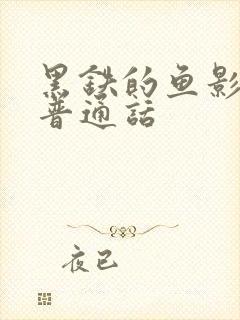 黑鉄的鱼影
普通話
夜已